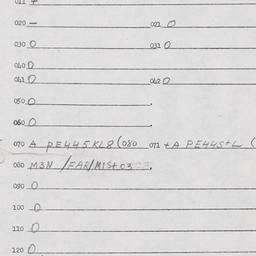 011 +
020 — 021 0
030 0 031 0
040 0
041 0 042 0
050 0
060 0
070 A PE445KL8(080 071 +A PE445+L (
080 M3N /EAR/MIST03
090 0
100 0
110 0
120 0